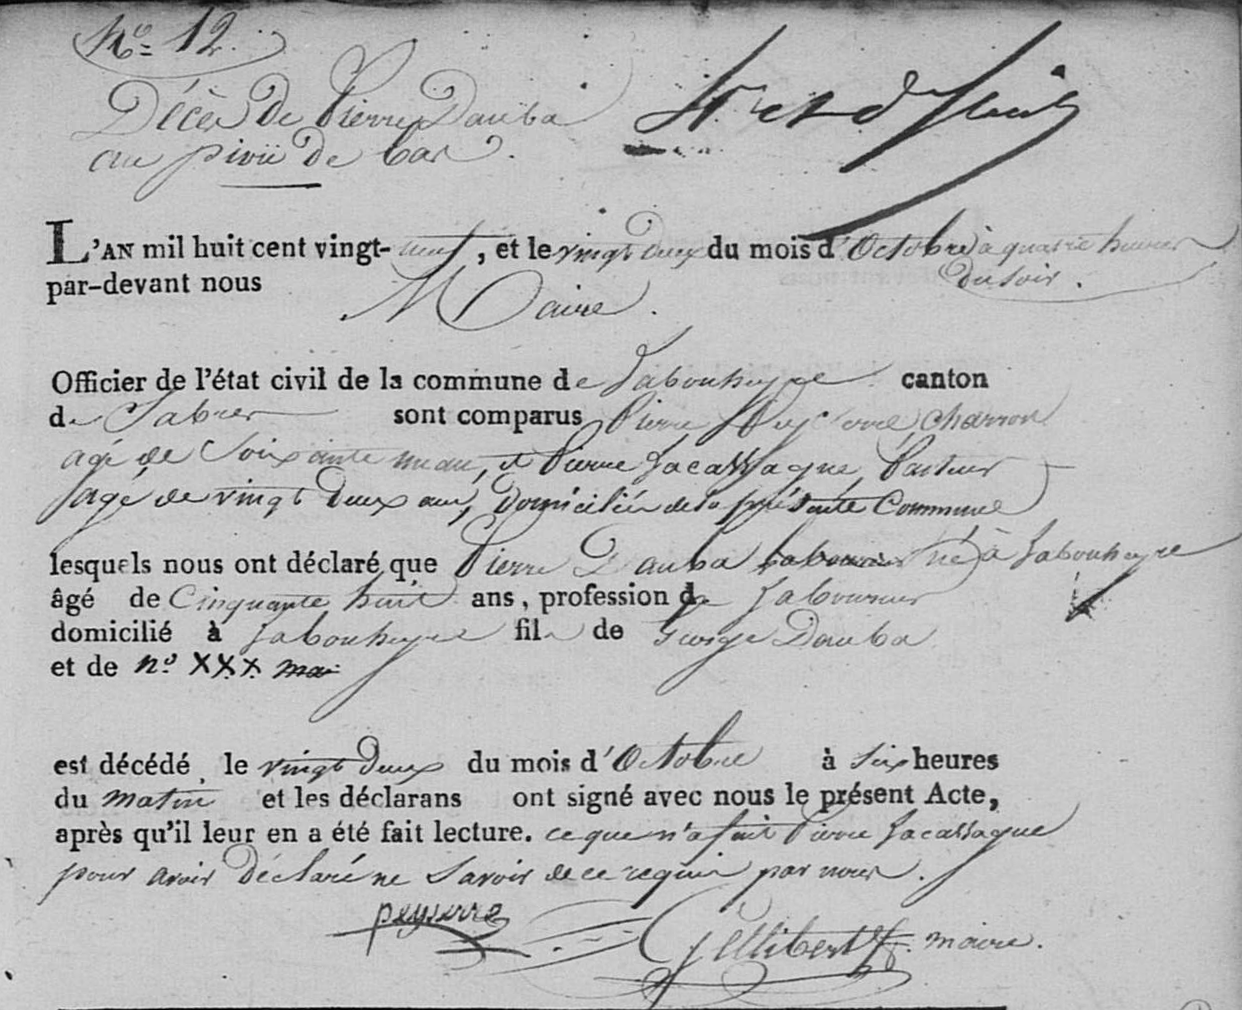 No. 12.
Décès De Pierre Dauba
au pivü De bas.
L'AN mil huit cent vingt-neuf, et le vingt Deux du mois d'Octobre à quatre heures
Du soir.
par-devant nous
Maire.
Officier de l'état civil de la commune de Labouheyre canton
de Sabres sont comparus Pierre Peyserré Charron
agé de Soixante un an, et Pierre Lacassagne Pasteur
agé de vingt Deux ans, Domiciliés de la présente Commune
lesquels nous ont déclaré que Pierre Dauba né à Labouheyre
âgé de Cinquante huit ans, profession de Laboureur
domicilié à Labouheyre fils de George Dauba
et de n.° XXX
est décédé le vingt Deux du mois d'Octobre à six heures
du matin et les déclarans ont signé avec nous le présent Acte,
après qu'il leur en a été fait lecture. ce que n'a fait Pierre Lacassagne
pour avoir Déclaré ne Savoir de ce requis par nous.
peyserre
Gellibert maire.